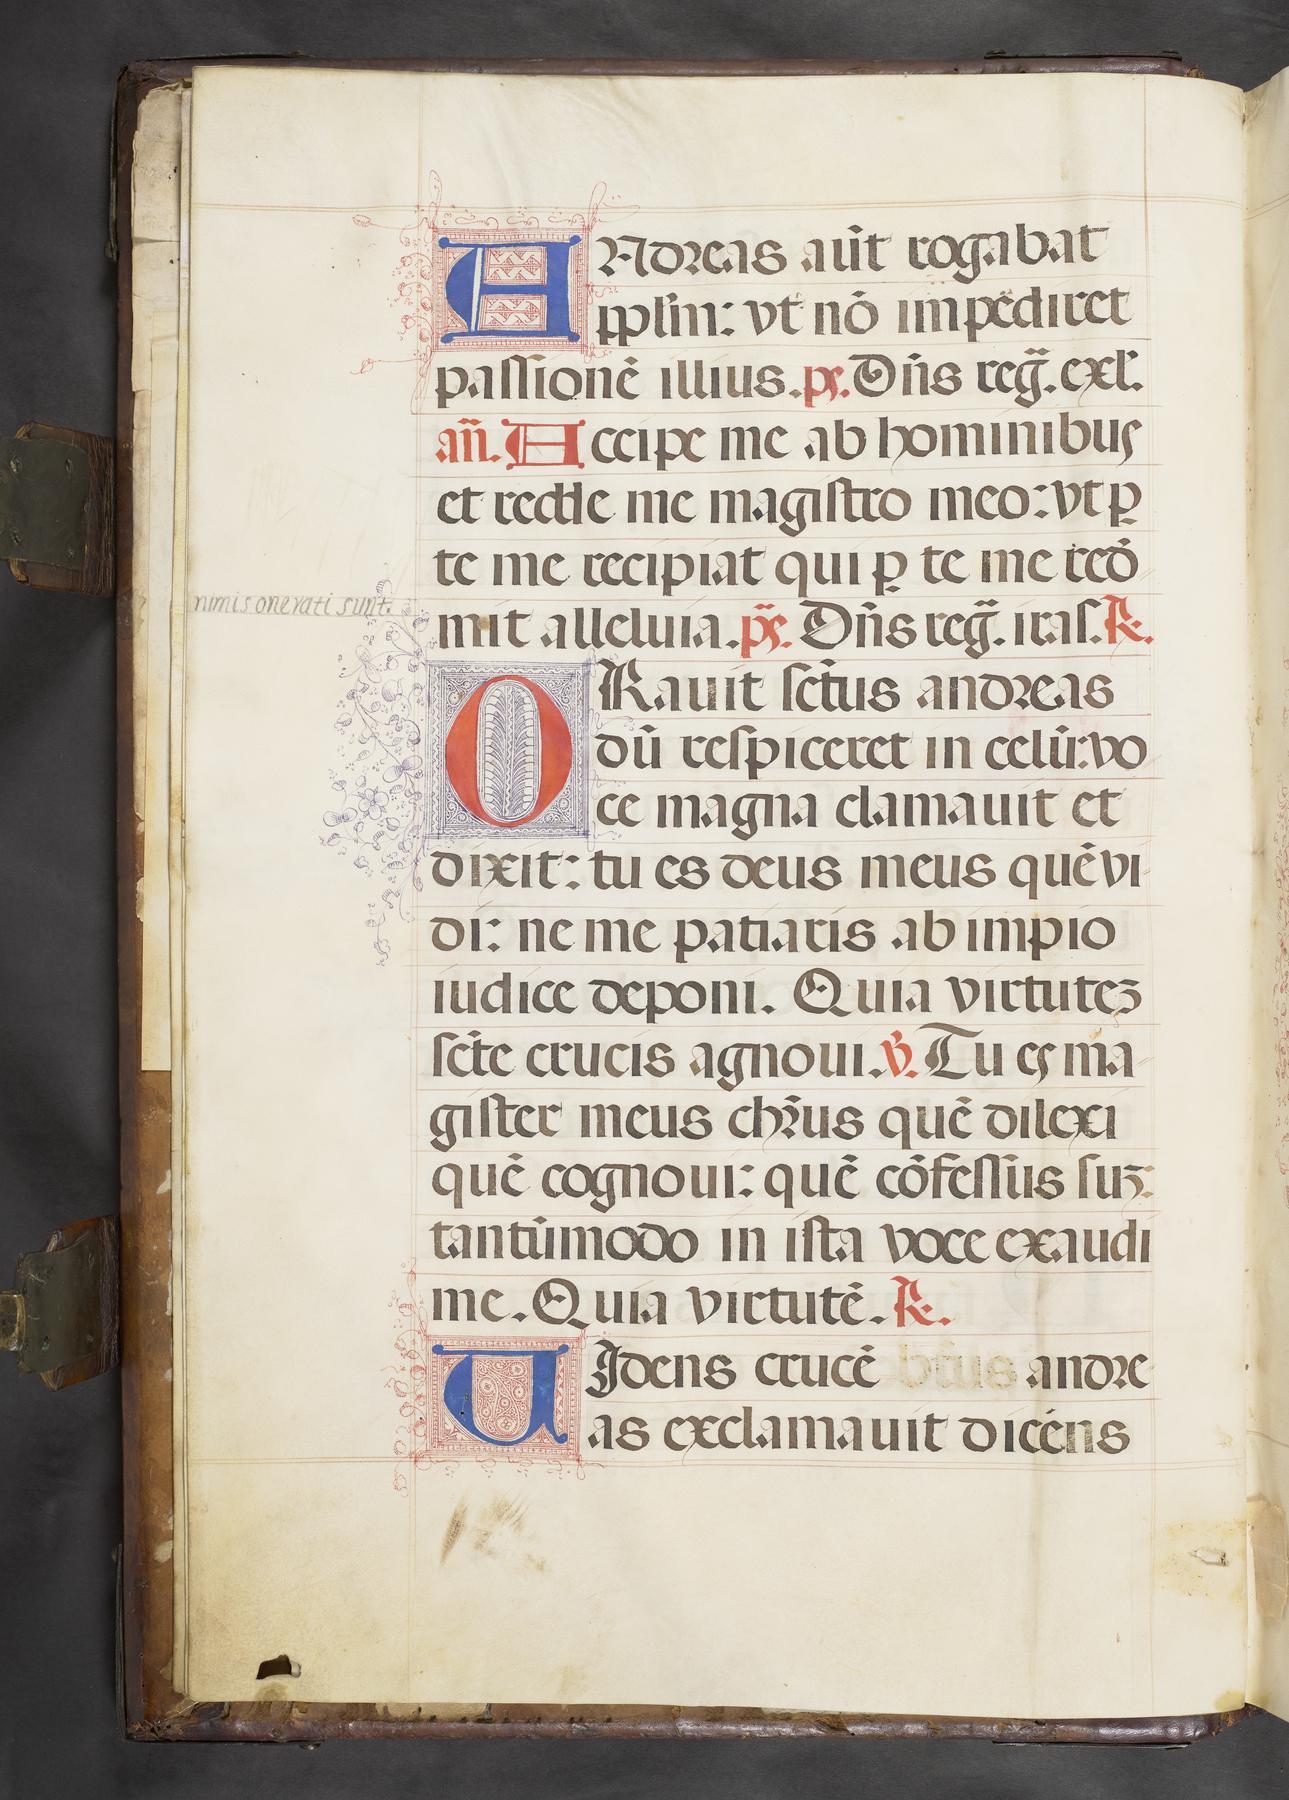 ANdreas aūt rogabat
pplīm: vt nō impēdiret
passionē illius. ps. Dn̄s reg̃. exl.
añ. Accipe me ab hominibus
et redde me magistro meo: vt ꝑ
te me recipiat qui ꝑ te me redō
mit alleluia. ps. Dn̄s reg̃. iras. R.
nimis onerati sunt.
ORauit sc̄tus andreas
dū respiceret in celū: vo
ce magna clamauit et
dixit: tu es deus meus quē vi
di: ne me patiaris ab impio
iudice deponi. Quia virtutez
sc̄te crucis agnoui. V. Tu es ma
gister meus chr̄us quē dilexi
quē cognoui: quē cōfessus suz:
tantūmodo in ista voce exaudi
me. Quia virtutē. R.
UIdens crucē andre
as exclamauit dicens